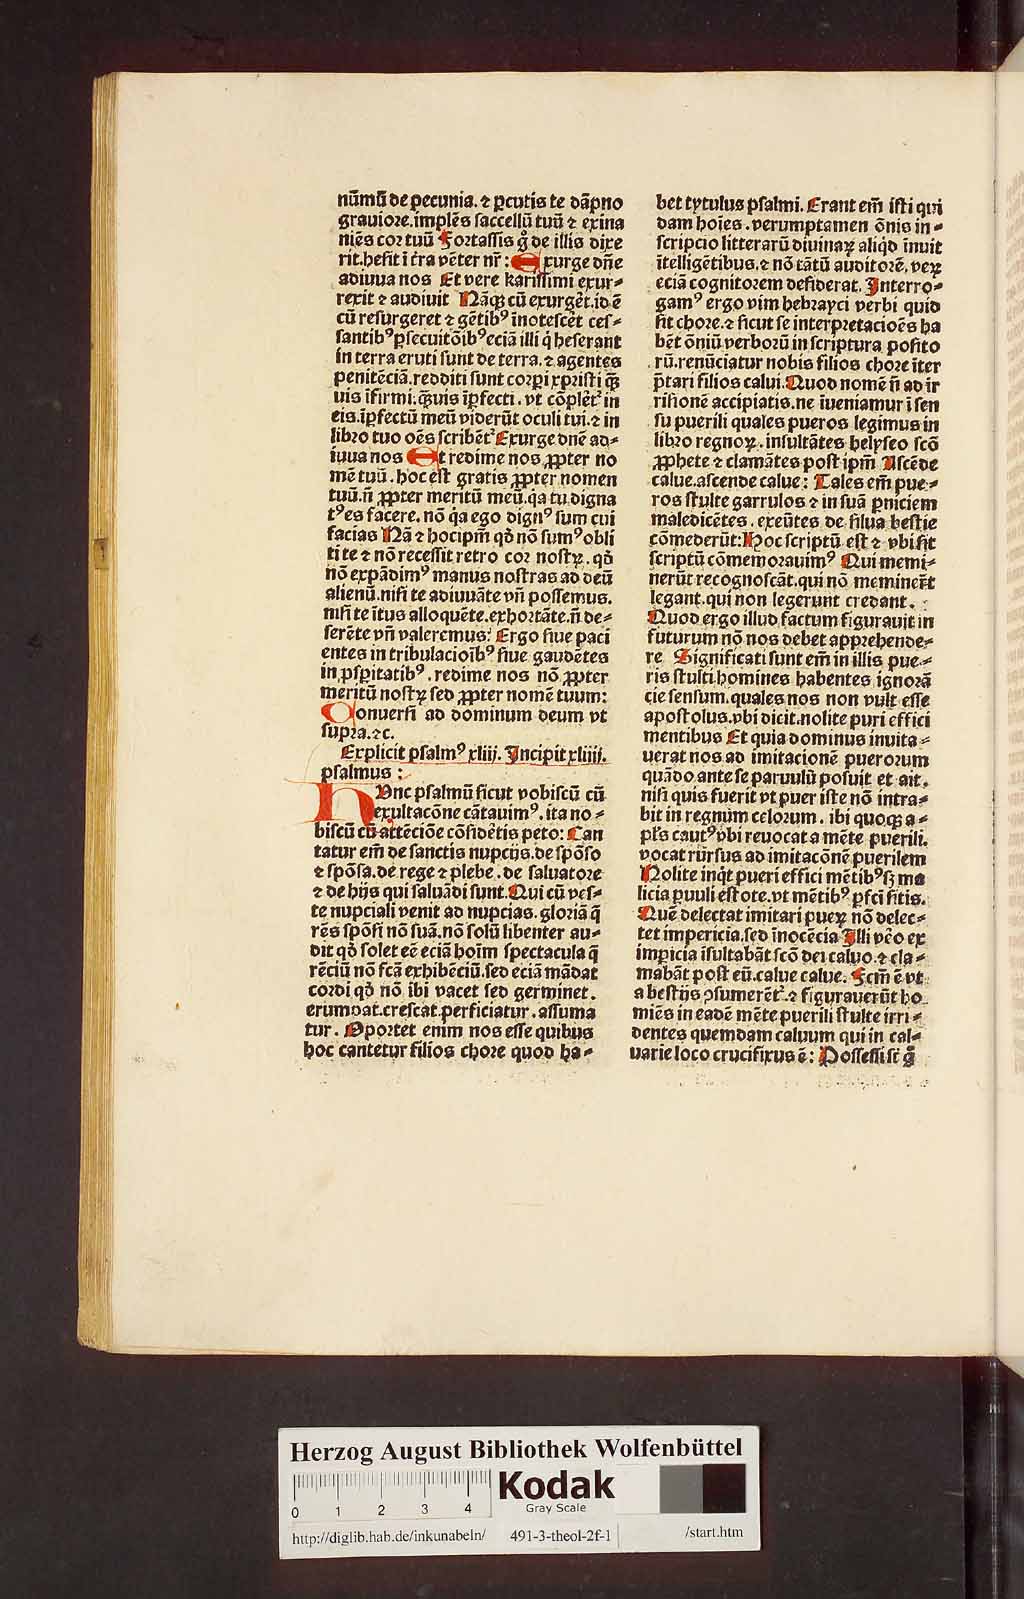 nūmū de pecunia. ⁊ ꝑcutis te dāpno
grauiore. implēs saccellū tuū ⁊ exina
niēs cor tuū Fortassis gͦ de illis dixe
rit. hesit ī t̄ra vēter nr̄: Exurge dn̄e
adiuua nos Et vere karissimi exur⸗
rexit ⁊ audiuit Nāqꝫ cū exurgēt. id ē
cū resurgeret ⁊ gētibꝰ īnotescēt ces⸗
santibꝰ ꝑsecuitōibꝰ eciā illi q̇ heserant
in terra eruti sunt de terra. ⁊ agentes
penitēciā. redditi sunt corꝑi xpristi q̄ꝫ
uis īfirmi. q̄ꝫuis īꝑfecti. vt cōplētꝛ in
eis. īꝑfectū meū viderūt oculi tui. ⁊ in
libro tuo oēs scribētꝛ Exurge dnē ad⸗
iuua nos Et redime nos ꝓpter no
mē tuū. hoc est gratis ꝓpter nomen
tuū. n̄ ꝓpter meritū meū. q̇a tu digna
tꝰ es facere. nō q̇a ego dignꝰ sum cui
facias Nā ⁊ hocipm̄ qd̄ nō sumꝰ obli
ti te ⁊ nō recessit retro cor nostꝝ. qd̄
nō expādimꝰ manus nostras ad deū
alienū. nisi te adiuuāte vn̄ possemus.
nisi te ītus alloquēte. exhortāte. n̄ de⸗
serēte vn̄ valeremus: Ergo siue paci
entes in tribulacioībꝰ siue gaudētes
in ꝓsꝑitatibꝰ. redime nos nō ꝓpter
meritū nostꝝ sed ꝓpter nomē tuum:
Conuersi ad dominum deum vt
supra. ⁊c.
Explicit psalmꝰ xliij. Incipit xliiij.
psalmus:
HUnc psalmū sicut vobiscū cū
exultacōne cātauimꝰ. ita no⸗
biscū cū attēciōe cōsidētis peto: Can
tatur em̄ de sanctis nupcijs. de spōso
⁊ spōsa. de rege ⁊ plebe. de saluatore
⁊ de hijs qui saluādi sunt. Qui cū ves⸗
te nupciali venit ad nupcias. gloriā q̄
rēs spōsi nō suā. nō solū libenter au⸗
dit qd̄ solet eē eciā hoīm spectacula q̄
rēciū nō fcā exhibēciū. sed eciā mādat
cordi qd̄ nō ibi vacet sed germinet.
erumpat. crescat. perficiatur. assuma
tur. Oportet enim nos esse quibus
hoc cantetur filios chore quod ha⸗
bet tytulus psalmi. Erant em̄ isti qui
dam hoīes. verumptamen ōnis in⸗
scripcio litterarū diuinaꝝ aliqd īnuit
ītelligētibus. ⁊ nō tātū auditorē. veꝝ
eciā cognitorem desiderat. Interro⸗
gamꝰ ergo vim hebrayci verbi quid
sit chore. ⁊ sicut se interpretacioēs ha
bēt ōniū verborū in scriptura posito
rū. renūciatur nobis filios chore īter
p̄tari filios calui. Quod nomē n̄ ad īr
risionē accipiatis. ne īueniamur ī sen
su puerili quales pueros legimus in
libro regnoꝝ. insultātes helyseo scō
ꝓphete ⁊ clamātes post ipm̄ Ascēde
calue. ascende calue: Tales em̄ pue⸗
ros stulte garrulos ⁊ in suā ꝑniciem
maledicētes. exeūtes de silua bestie
cōmederūt: Hoc scriptū est ⁊ vbi sit
scriptū cōmemorauimꝰ Qui memi⸗
nerūt recognoscāt. qui nō meminer̄t
legant. qui non legerunt credant.
Quod ergo illud factum figurauit in
futurum nō nos debet apprehende⸗
re Significati sunt em̄ in illis pue⸗
ris stulti homines habentes ignorā
cie sensum. quales nos non vult esse
apostolus. vbi dicit. nolite puri effici
mentibus Et quia dominus inuita⸗
uerat nos ad imitacionē puerorum
quādo ante se paruulū posuit et ait.
nisi quis fuerit vt puer iste nō intra⸗
bit in regnum celorum. ibi quoqꝫ a⸗
pl̄s cautꝰ vbi reuocat a mēte puerili.
vocat rursus ad imitacōnē puerilem
Nolite inq̇t pueri effici mētibꝰ sꝫ ma
licia ꝑuuli estote. vt mētibꝰ ꝑfci sitis.
Quē delectat imitari pueꝝ nō delec⸗
tet impericia. sed īnocēcia Illi vēo ex
imꝑicia īsultabāt scō dei caluo. ⁊ cla⸗
mabāt post eū. calue calue. Fcm̄ ē vt
a bestijs ꝯsumerētꝛ. ⁊ figurauerūt ho
mies in eadē mēte puerili stulte irri⸗
dentes quemdam caluum qui in cal⸗
uarie loco crucifixus ē: Possessi st̄ gͦ
Herzog August Bibliothek Wolfenbüttel
0 1 2 3 4
Kodak
Gray Scale
http://diglib.hab.de/inkunabeln/ 491-3-theol-2f-1 /start.htm